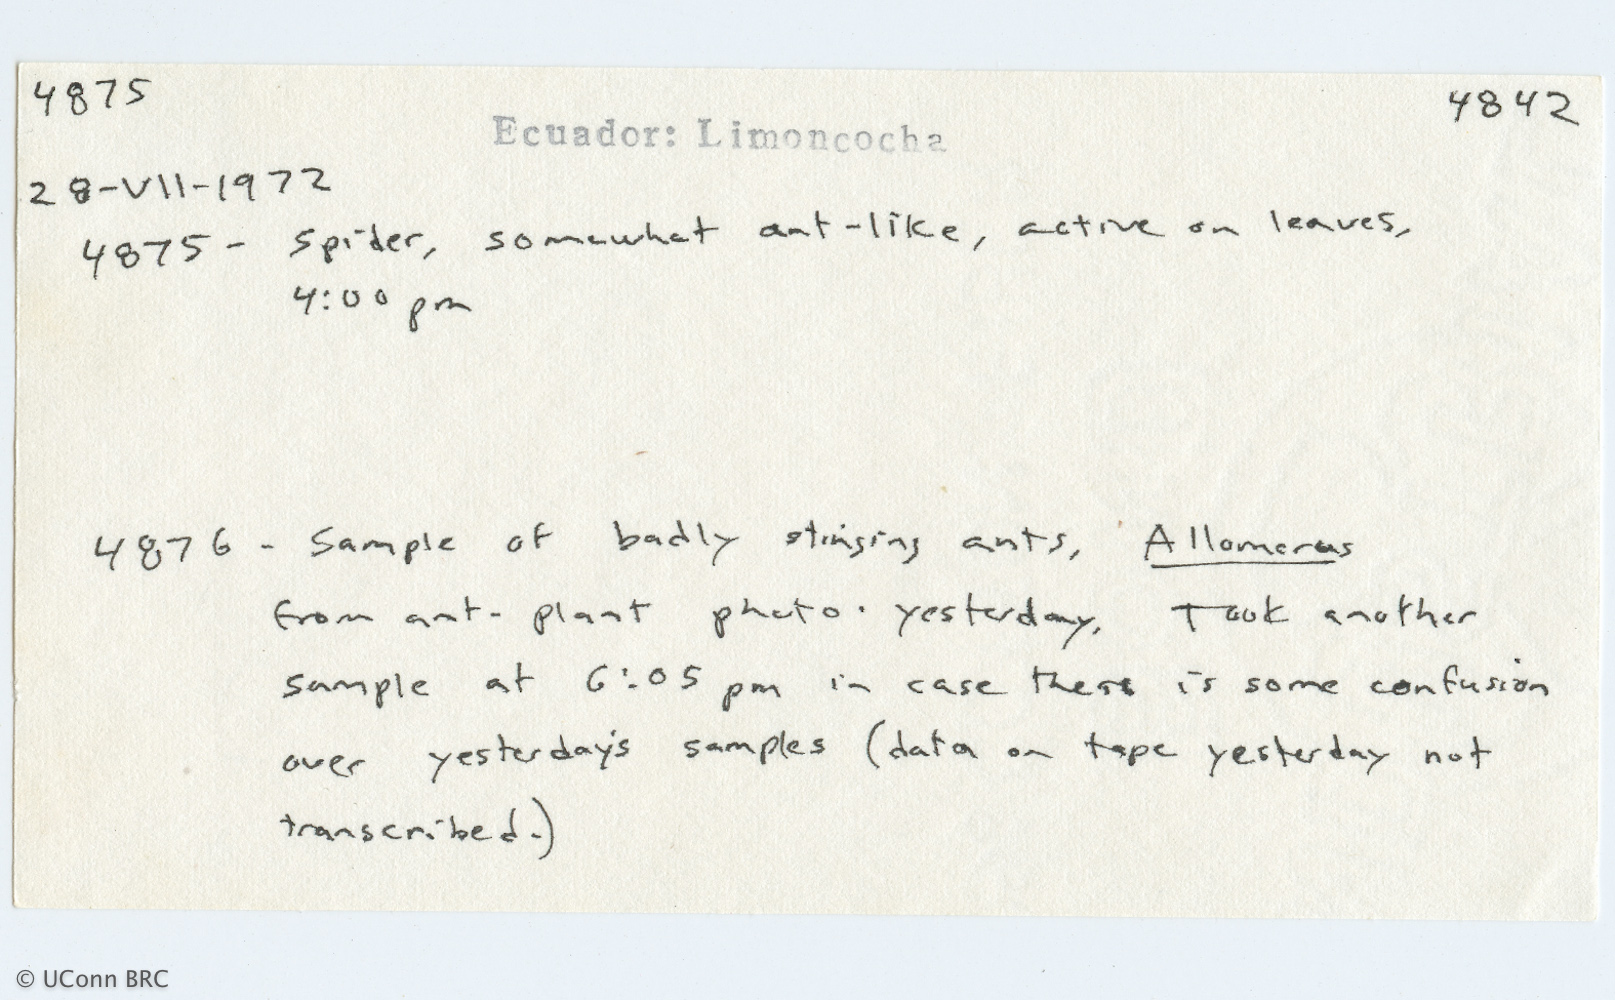 4875
4842
Ecuador: Limoncocha
28-VII-1972
4875 - Spider, somewhat ant-like, active on leaves,
4:00 pm
4876 - Sample of badly stinging ants, Allomerus
from ant-plant photo. yesterday. Took another
sample at 6:05 pm in case there is some confusion
over yesterday's samples (data on tape yesterday not
transcribed.)
© UConn BRC